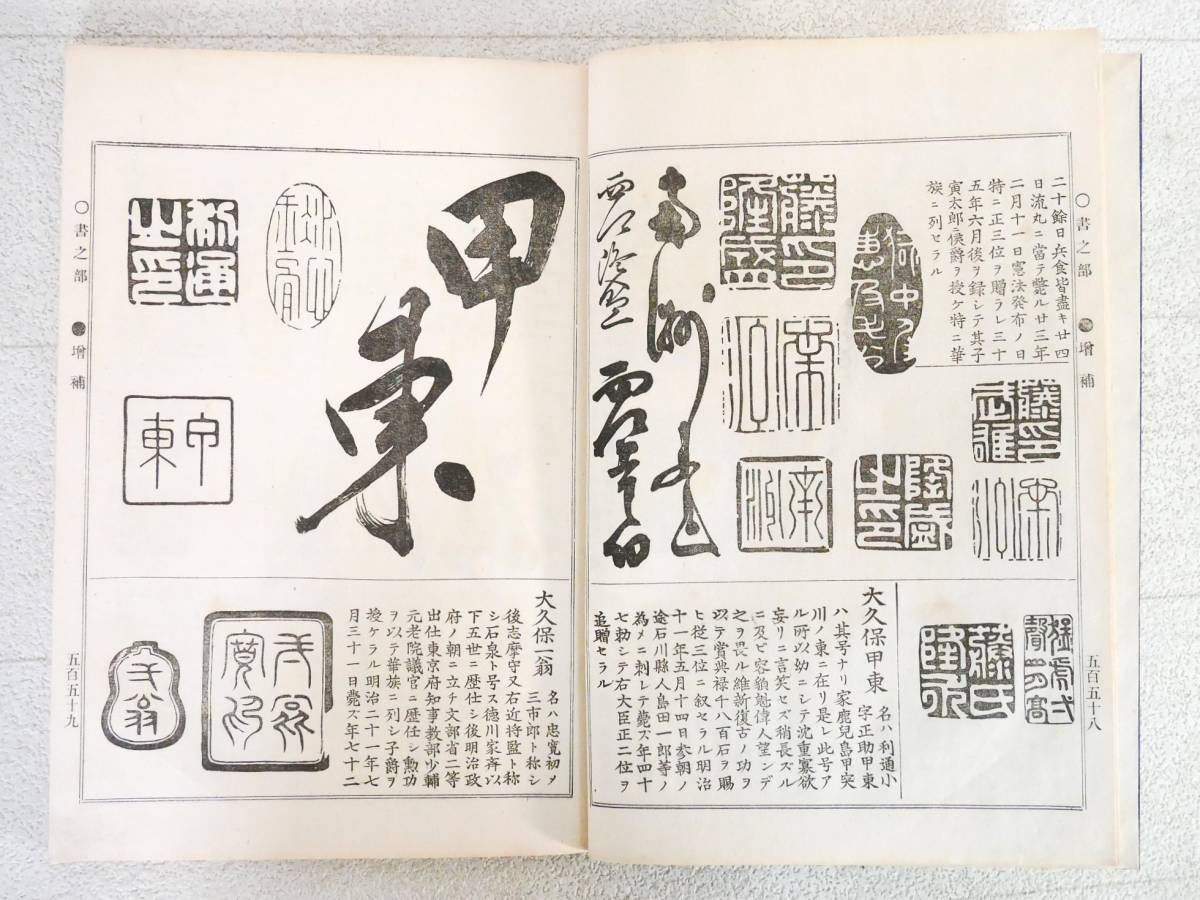 ○書之部
增補
五百五十八
二十餘日兵食皆盡キ廿四
日流丸ニ當テ斃ル廿三年
二月十一日憲法發布ノ日
特ニ正三位ヲ贈ラレ三十
五年六月後ヲ録シテ其子
寅太郎ニ侯爵ヲ授ケ特ニ華
族ニ列セラル
藤印
武雄
隆盛
之印
藤印
隆盛
南洲
藤氏
隆永
大久保甲東
名ハ利通小
字正助甲東
ハ其号ナリ家鹿兒島甲突
川ノ東ニ在リ是レ此号ア
ル所以幼ニシテ沈重寡欲
妄リニ言笑セズ稍長ズル
ニ及ビ容貌魁偉人望ンデ
之ヲ畏ル維新復古ノ功ヲ
以テ賞典禄千八百石ヲ賜
ヒ從三位ニ叙セラル明治
十一年五月十四日参朝ノ
途石川縣人島田一郎等ノ
為メニ刺レテ薨ズ年四十
七勅シテ右大臣正二位ヲ
追贈セラル
甲東
利通
之印
甲東
大久保一翁
名ハ忠寛初メ
三市郎ト称シ
後志摩守又右近将監ト称
シ石泉ト号ス徳川家斉以
下五世ニ歴仕シ後明治政
府ノ朝ニ立チ文部省二等
出仕東京府知事教部少輔
元老院議官ニ歴任シ勲功
ヲ以テ華族ニ列シ子爵ヲ
授ケラル明治二十一年七
月三十一日薨ズ年七十二
○書之部
增補
五百五十九